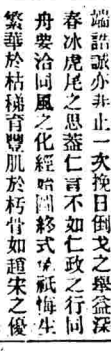 端誥誠亦非止一次挽日倒戈之舉益深
春冰虎尾之思蓋仁言不如仁政之行同
舟要洽同風之化經始圖終式旣祇悔生
繁華於枯稊育豐肌於朽骨如趙宋之優